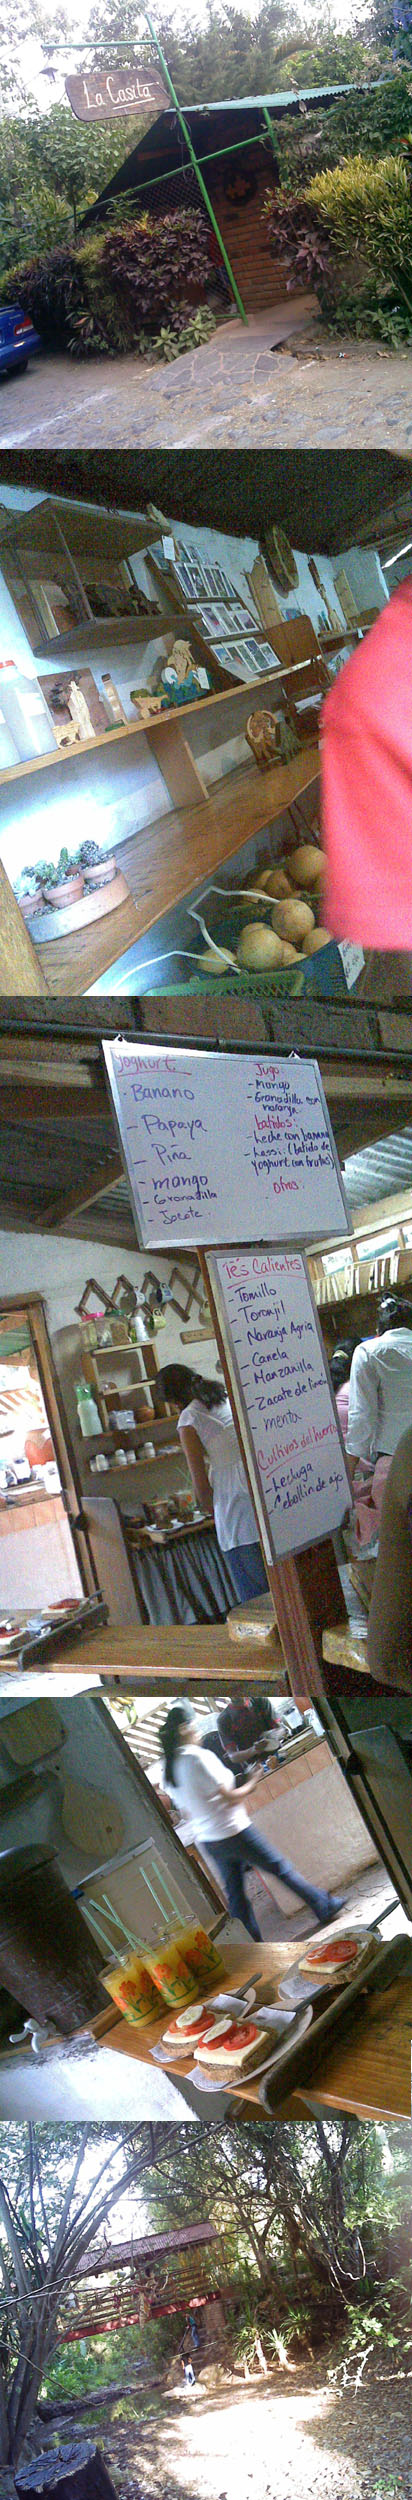 La Casita
Yoghurt.
- Banano
- Papaya
- Pina
- mango
- Granadilla
- Jocote.
Jugo
- Mango
- Granadilla con
naranja.
batidos:
- Leche con banano
- Lassi: (batido de
yoghurt con frutas)
otros.
Tés Calientes
- Tomillo
- Toronjil
- Naranja Agria
- Canela
- Manzanilla
- Zacate de limón
- menta
Cultivos del huerto
- Lechuga
- Cebollin de ajo